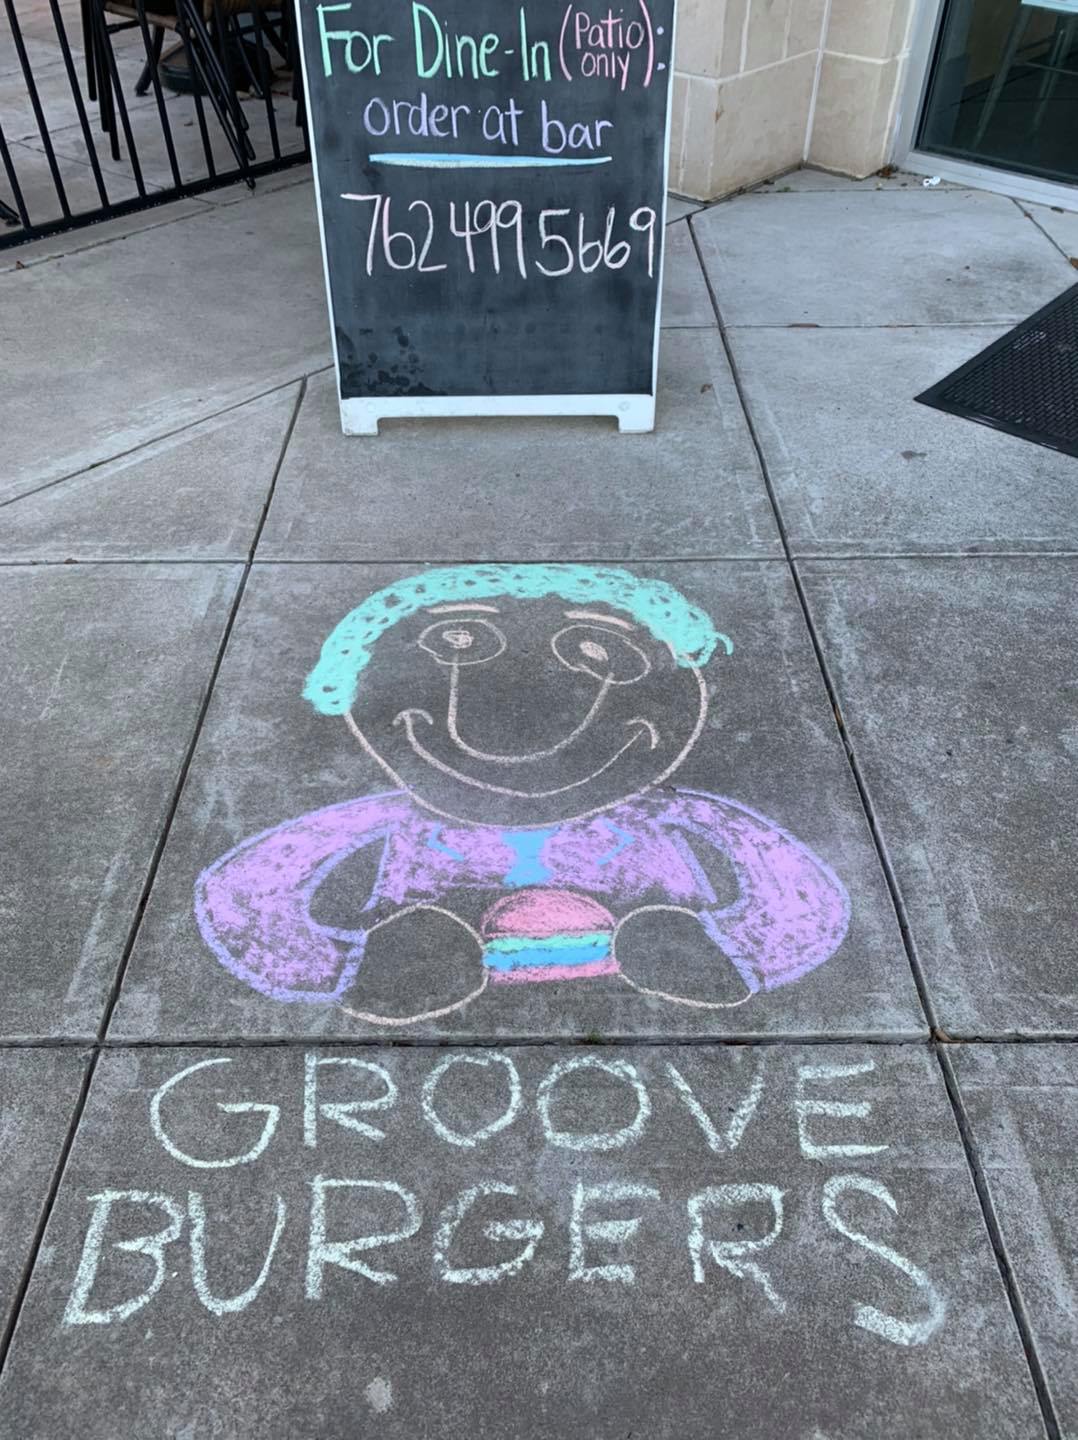 For Dine-In (Patio only):
order at bar
762 499 5669
GROOVE
BURGERS